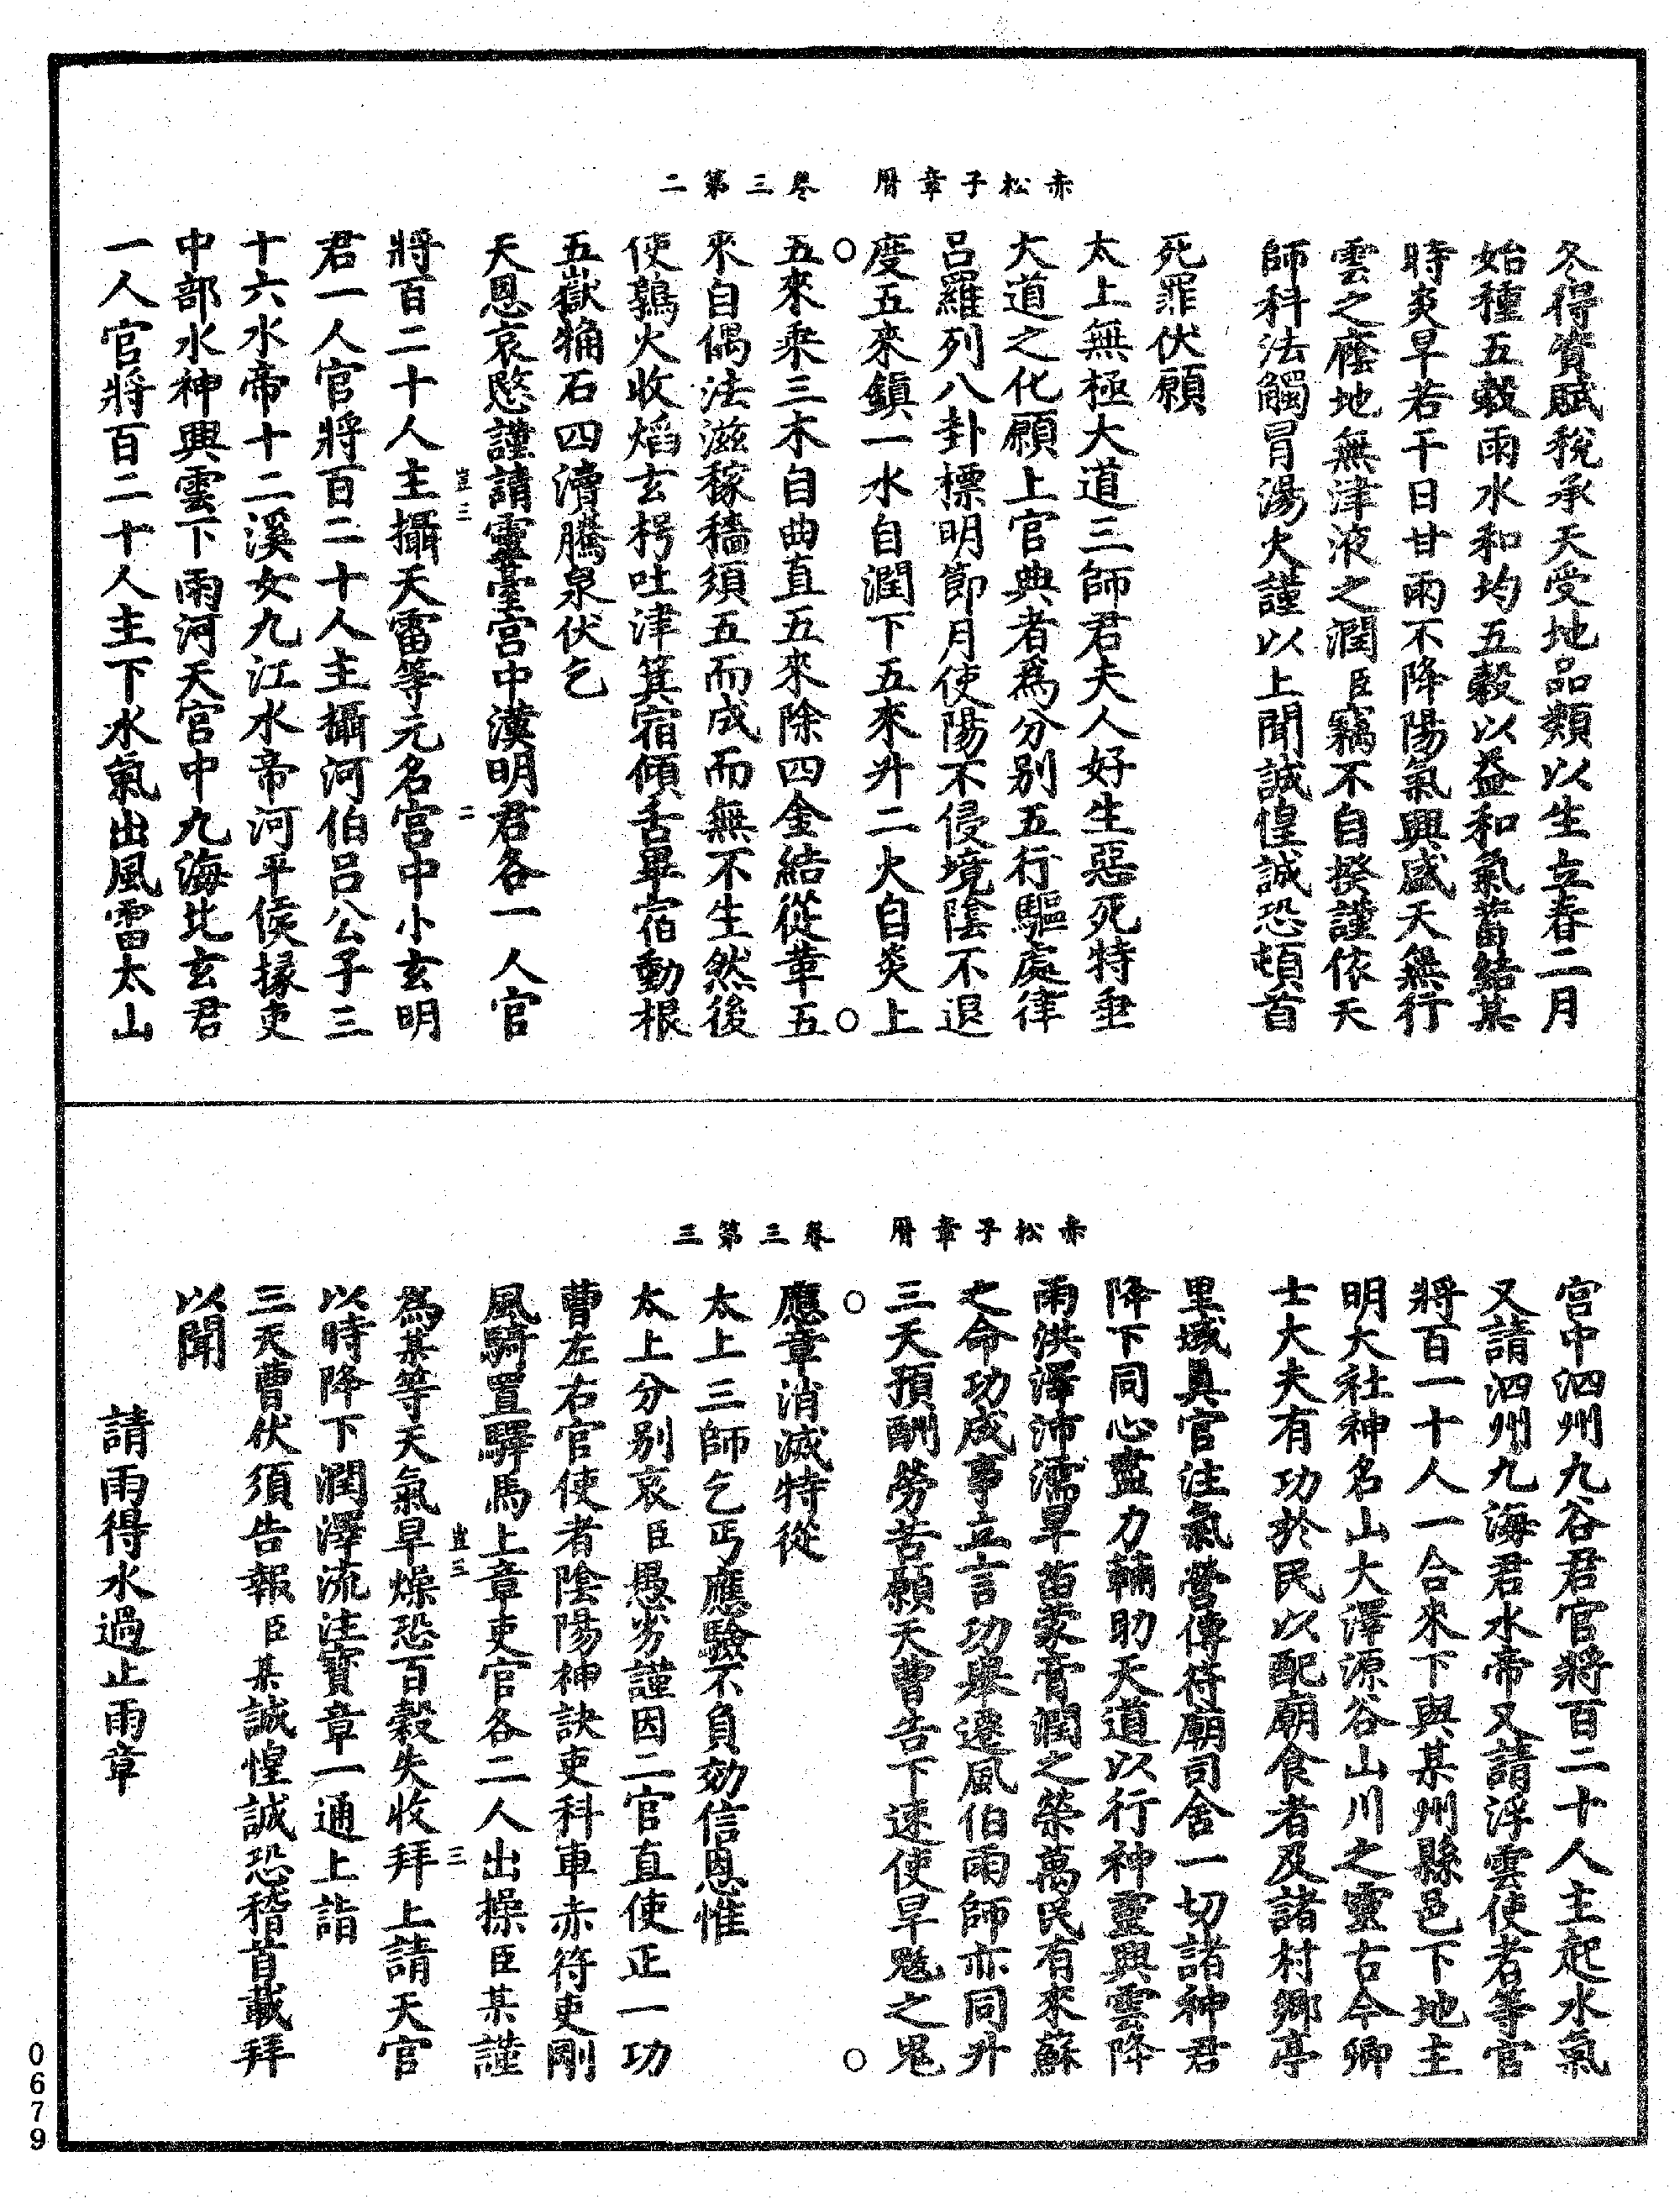 赤松子章曆　卷三第二
冬得資賦稅承天受地品類以生立春二月
始種五穀雨水和均五穀以益和氣蓄結某
時炎旱若干日甘雨不降陽氣興盛天無行
雲之廕地無津液之潤臣竊不自揆謹依天
師科法觸冒湯火謹以上聞誠惶誠恐頓首
死罪伏願
太上無極大道三師君夫人好生惡死特垂
大道之化願上官典者為分别五行驅處律
呂羅列八卦標明節月使陽不侵境陰不退
度五來鎮一水自潤下五來升二火自炎上
五來乘三木自曲直五來除四金結從革五
來自偶法滋稼穡須五而成而無不生然後
使鶉火收焰玄枵吐津箕宿傾舌畢宿動根
五嶽犕石四瀆騰泉伏乞
天恩哀愍謹請靈臺宮中漢明君各一人官
豈三　二
將百二十人主攝天雷等元名宮中小玄明
君一人官將百二十人主攝河伯呂公子三
十六水帝十二溪女九江水帝河平侯掾吏
中部水神興雲下雨河天官中九海北玄君
一人官將百二十人主下水氣出風雷太山
赤松子章曆　卷三第三
宮中泗州九谷君官將百二十人主起水氣
又請泗州九海君水帝又請浮雲使者等官
將百一十人一合來下與某州縣邑下地主
明大社神名山大澤源谷山川之靈古今卿
士大夫有功於民以配廟食者及諸村鄉亭
里域真官注氣營傳符廟司舍一切諸神君
降下同心盡力輔助天道以行神靈興雲降
雨洪澤沛濡旱苗蒙膏潤之榮萬民有來蘇
之命功成事立言功舉遷風伯雨師亦同升
三天預酬勞苦願天曹告下速使旱魃之鬼
應章消滅特從
太上三師乞丐應驗不負効信恩惟
太上分别哀臣愚劣謹因二官直使正一功
曹左右官使者陰陽神訣吏科車赤符吏剛
風騎置驛馬上章吏官各二人出操臣某謹
豈三　三
為某等天氣旱燥恐百穀失收拜上請天官
以時降下潤澤流注寶章一通上詣
三天曹伏須告報臣某誠惶誠恐稽首載拜
以聞
請雨得水過止雨章
0679